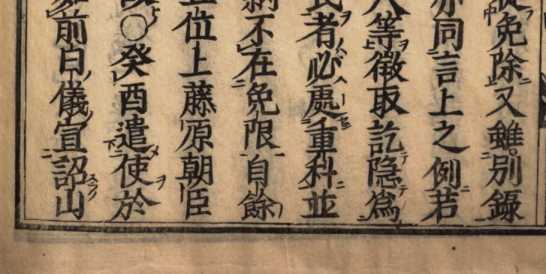 免除又雖別錄
亦同言上之例若
等徵取訖隱為
民者必處重科並
不在免限自餘
位上藤原朝臣
○癸酉遣使於
前日儀宣詔山